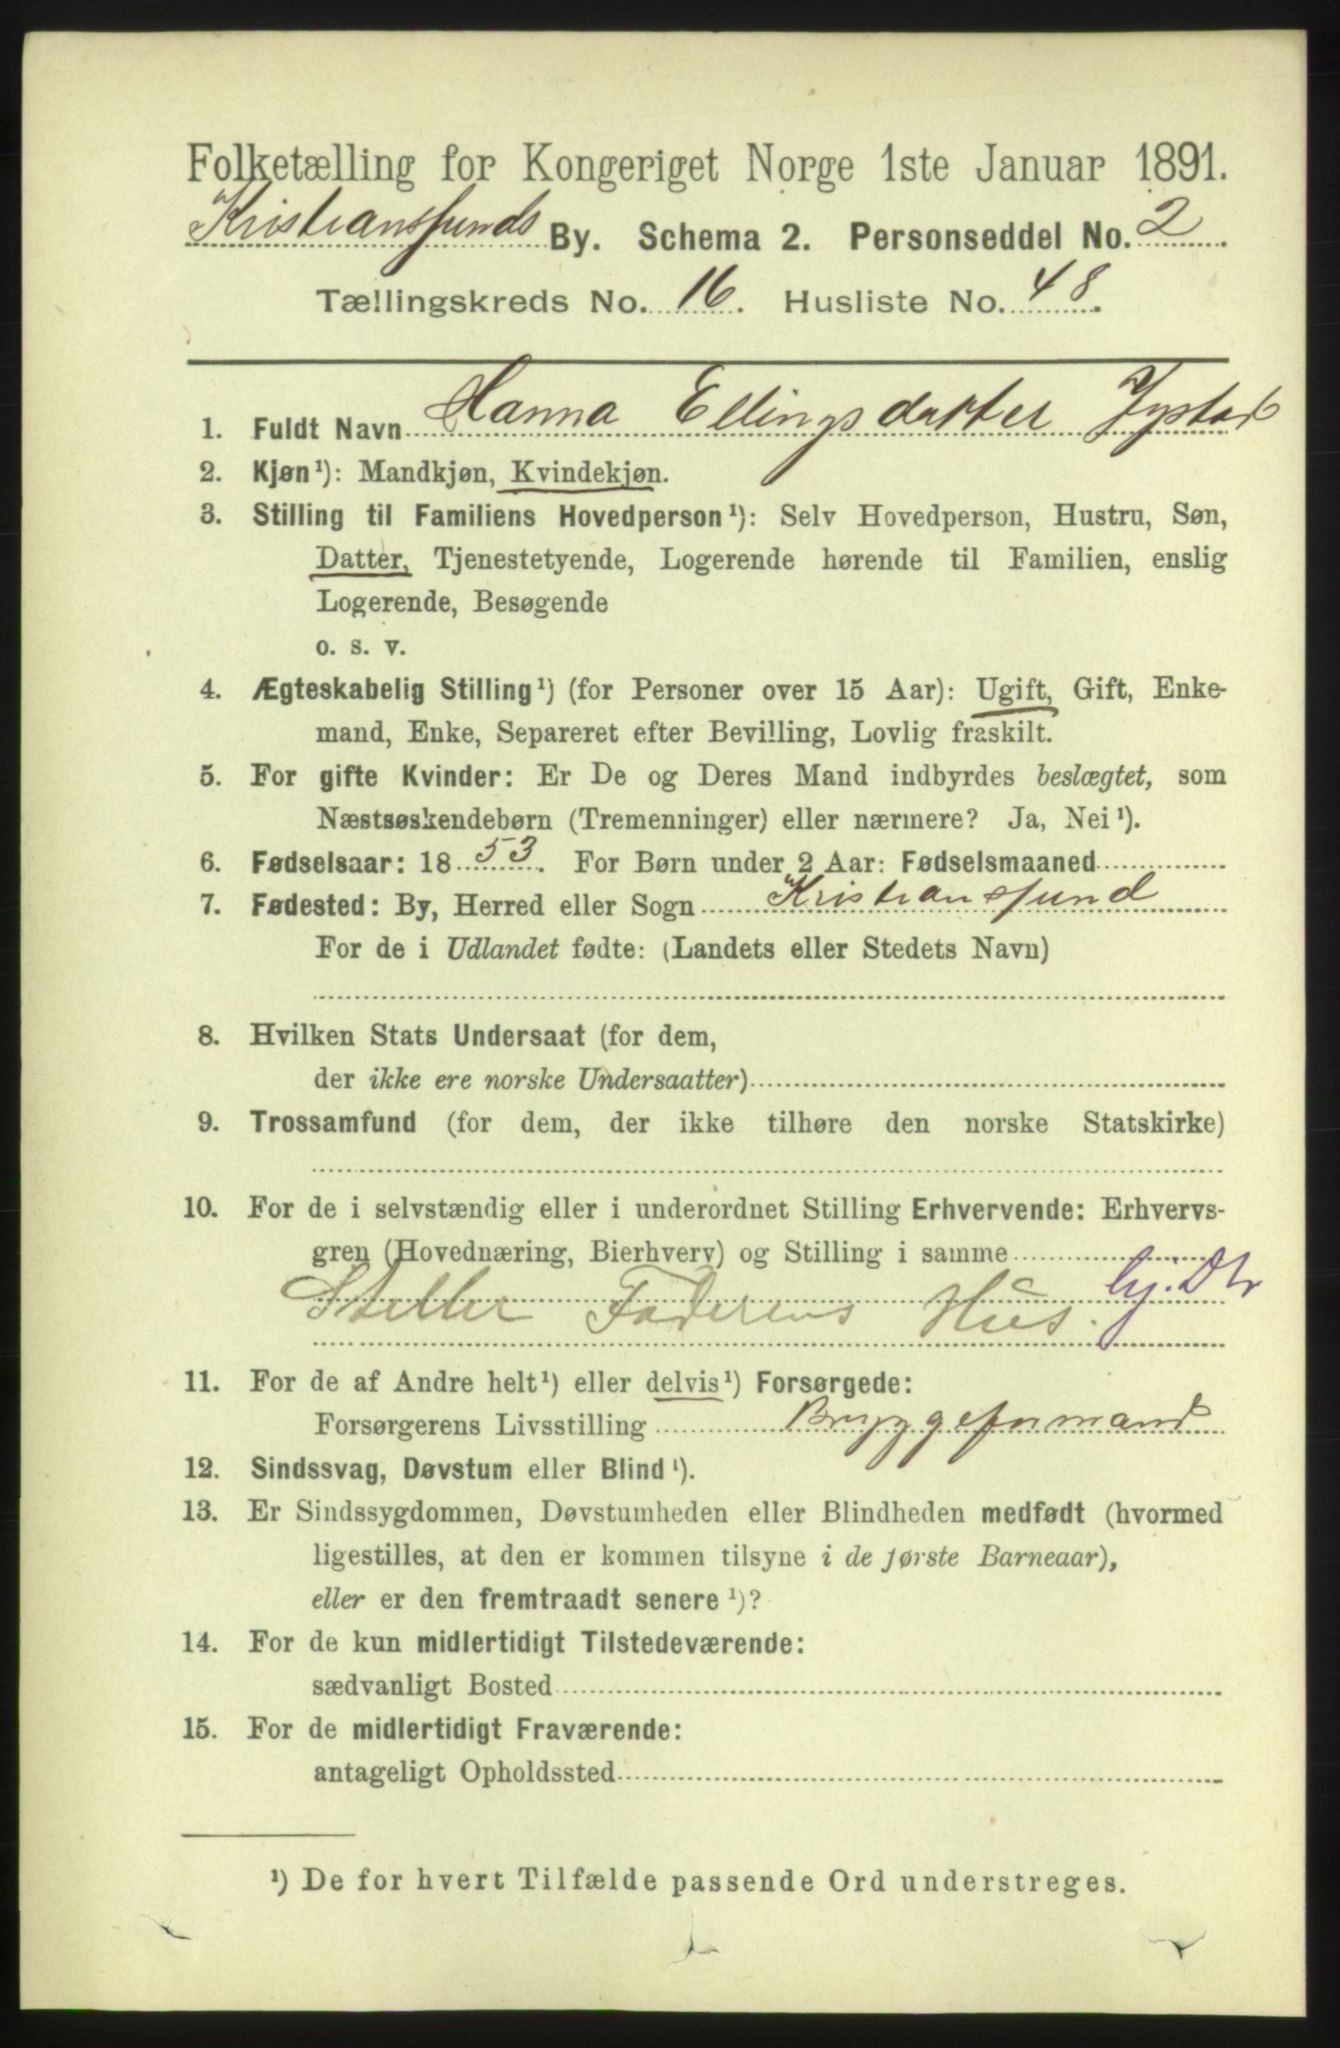 Folketælling for Kongeriget Norge 1ste Januar 1891.
Kristianssunds By. Schema 2. Personseddel No. 2
Tællingskreds No. 16. Husliste No. 48.
1. Fuldt Navn Hanna Ellingsdatter
2. Kjøn¹): Mandkjøn, Kvindekjøn.
3. Stilling til Familiens Hovedperson¹): Selv Hovedperson, Hustru, Søn,
Datter, Tjenestetyende, Logerende hørende til Familien, enslig
Logerende, Besøgende
o. s. v.
4. Ægteskabelig Stilling¹) (for Personer over 15 Aar): Ugift, Gift, Enke-
mand, Enke, Separeret efter Bevilling, Lovlig fraskilt.
5. For gifte Kvinder: Er De og Deres Mand indbyrdes beslægtet, som
Næstsøskendebørn (Tremenninger) eller nærmere? Ja, Nei¹).
6. Fødselsaar: 1853. For Børn under 2 Aar: Fødselsmaaned
7. Fødested: By, Herred eller Sogn Kristianssund
For de i Udlandet fødte: (Landets eller Stedets Navn)
8. Hvilken Stats Undersaat (for dem,
der ikke ere norske Undersaatter)
9. Trossamfund (for dem, der ikke tilhøre den norske Statskirke)
10. For de i selvstændig eller i underordnet Stilling Erhvervende: Erhvervs-
gren (Hovednæring, Bierhverv) og Stilling i samme
Steller Faderens Hus.
11. For de af Andre helt¹) eller delvis¹) Forsørgede:
Forsørgerens Livsstilling Bryggeformand
12. Sindssvag, Døvstum eller Blind¹).
13. Er Sindssygdommen, Døvstumheden eller Blindheden medfødt (hvormed
ligestilles, at den er kommen tilsyne i de første Barneaar),
eller er den fremtraadt senere¹)?
14. For de kun midlertidigt Tilstedeværende:
sædvanligt Bosted
15. For de midlertidigt Fraværende:
antageligt Opholdssted
¹) De for hvert Tilfælde passende Ord understreges.